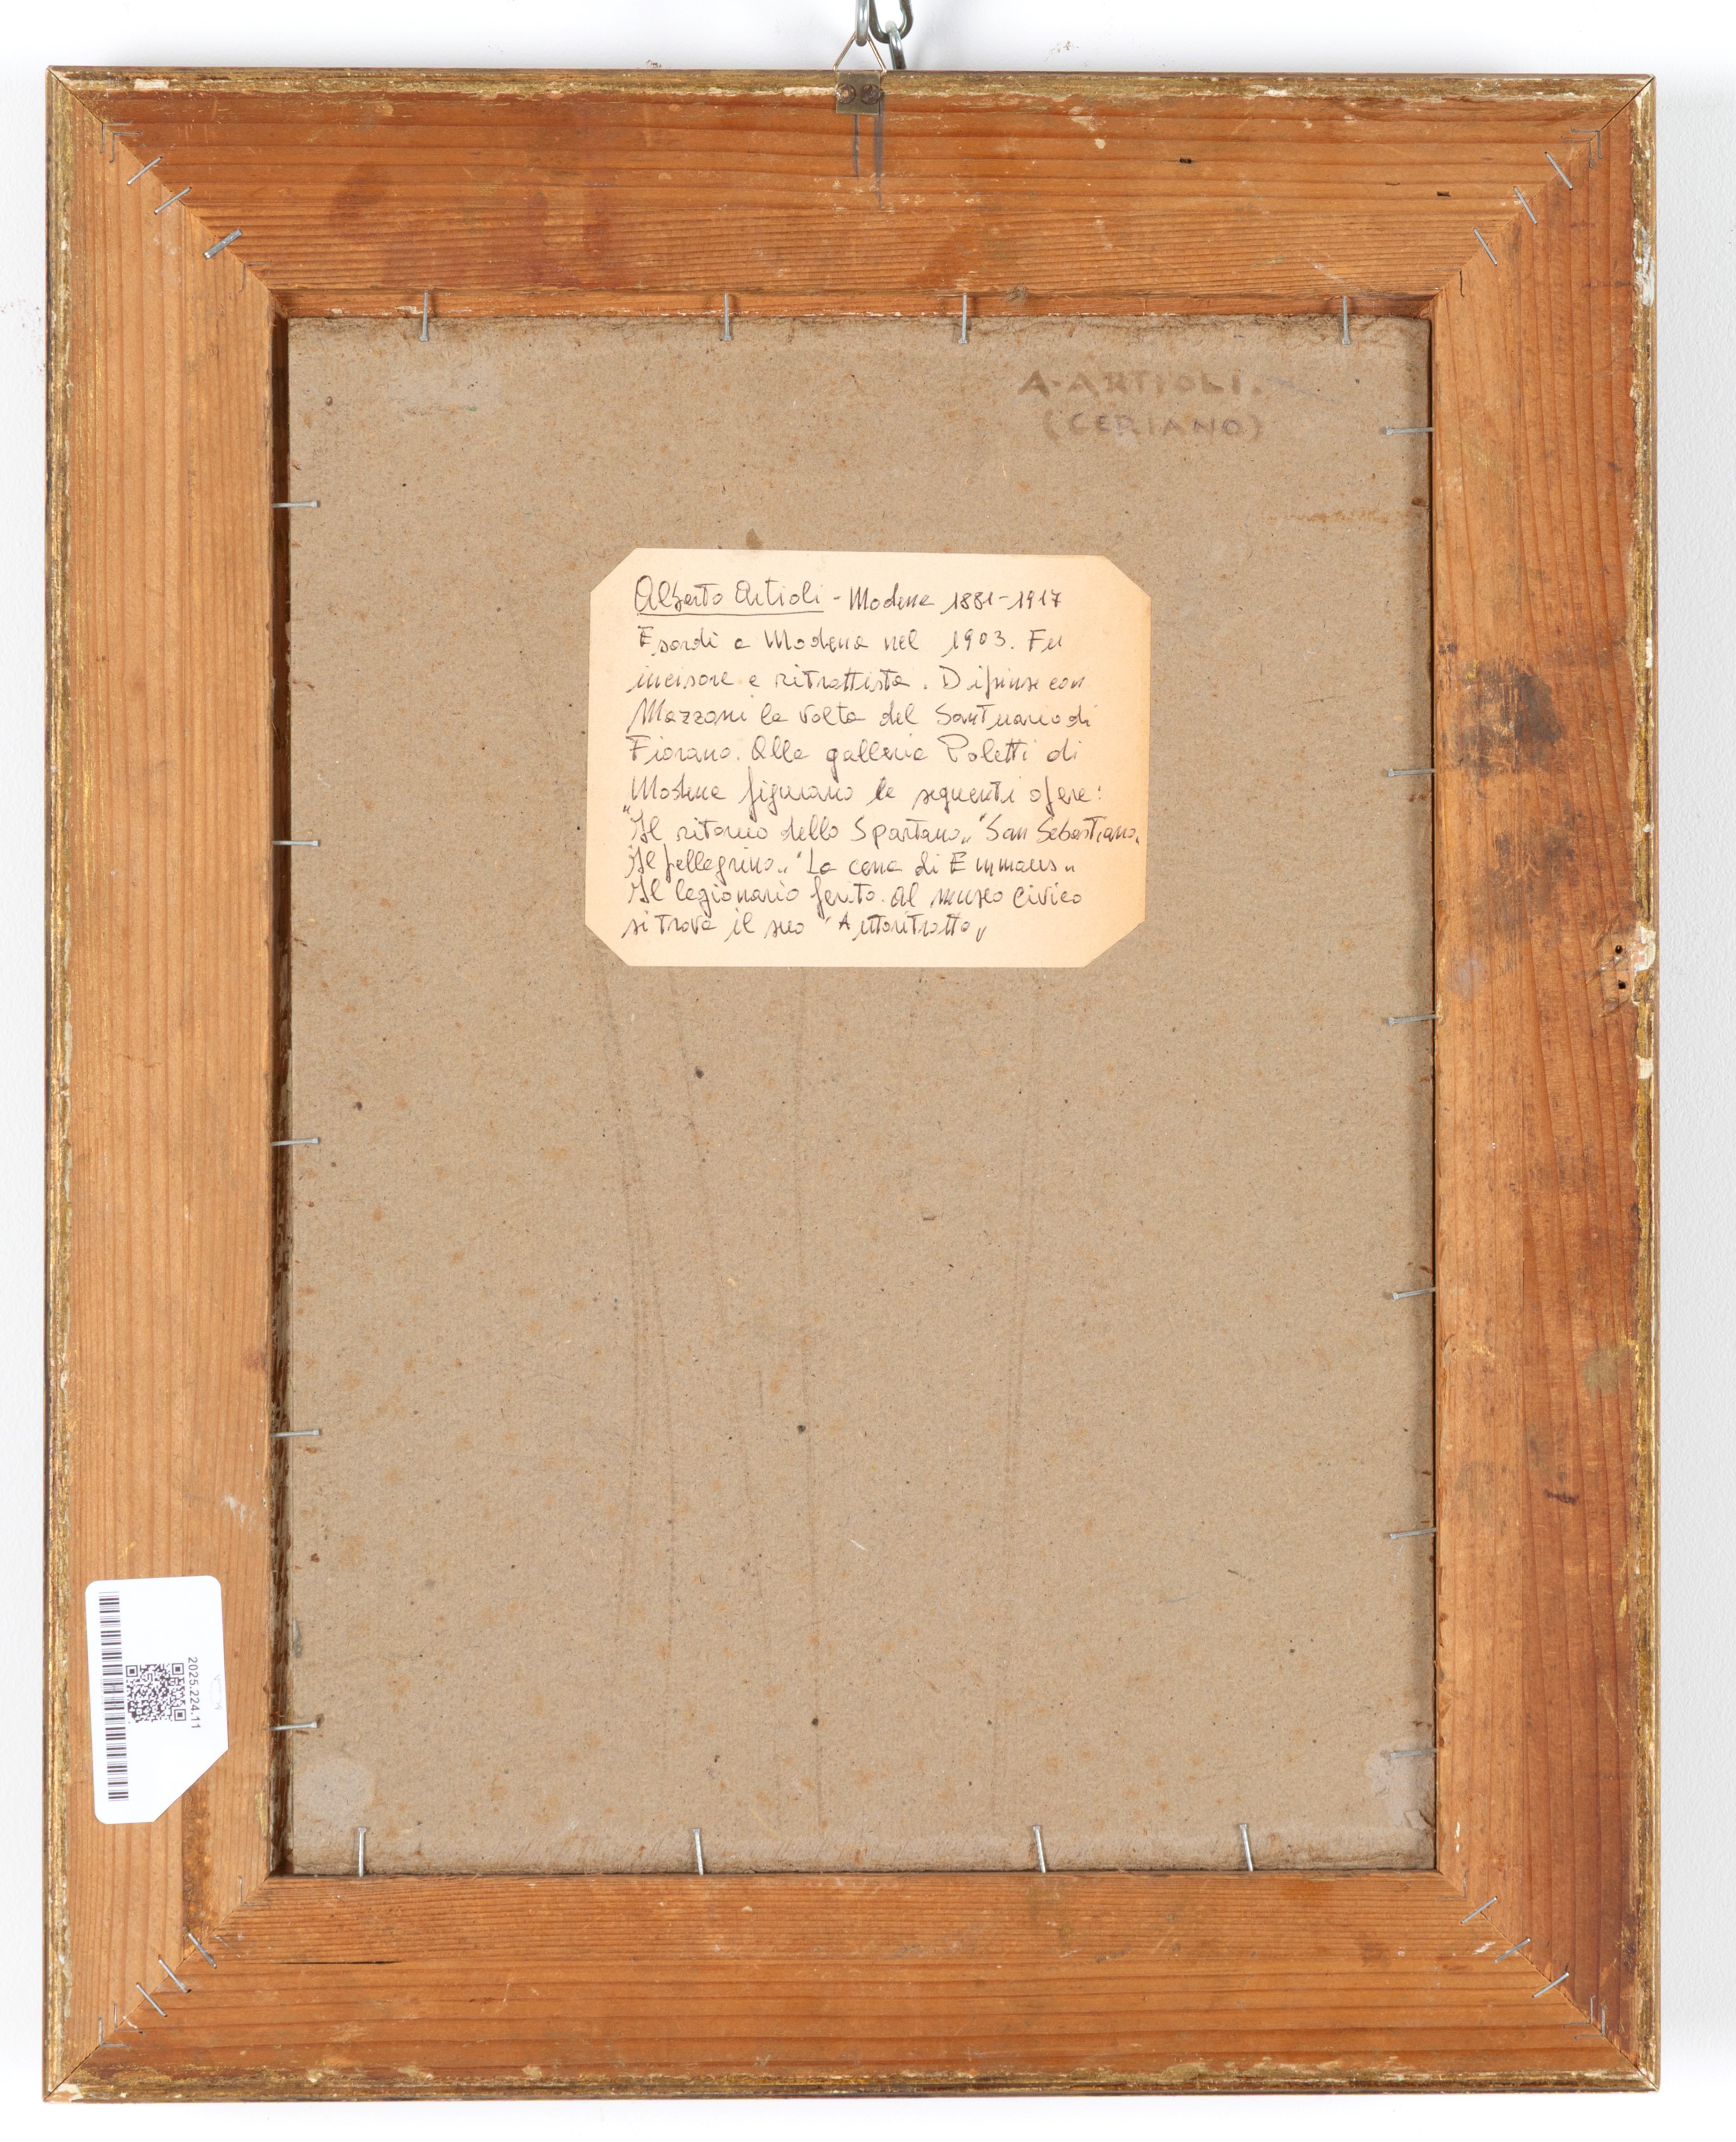 A. ARTIOLI.
(CERIANO)
Alberto Artioli - Modena 1881-1917
Esordì a Modena nel 1903. Fu
incisore e ritrattista. Dipinse con
Mazzoni la volta del Santuario di
Fiorano. Alla galleria Poletti di
Modena figurano le seguenti opere:
"Il ritorno dello Spartano„ "San Sebastiano„
"Il pellegrino„ "La cena di Emmaus„
Il legionario ferito. Al museo Civico
si trova il suo "Autoritratto„
2025.224.11